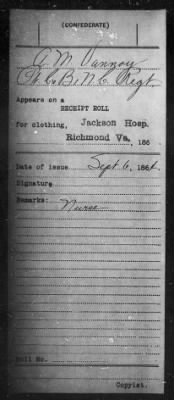 (CONFEDERATE)
A. M. Vannoy
Appears on a
RECEIPT ROLL
for clothing, Jackson Hosp.
Richmond Va, 186
Date of issue Sept 6, 1864.
Signature
Remarks:
Nurse
Roll No.
Copyist.